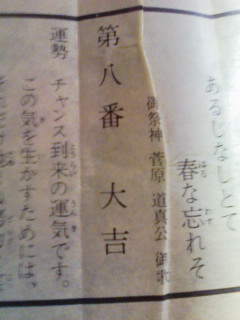 あるじなしとて
春な忘れそ
御祭神 菅原道真公 御歌
第八番 大吉
運勢 チャンス到来の運気です。
この気を生かすためには、